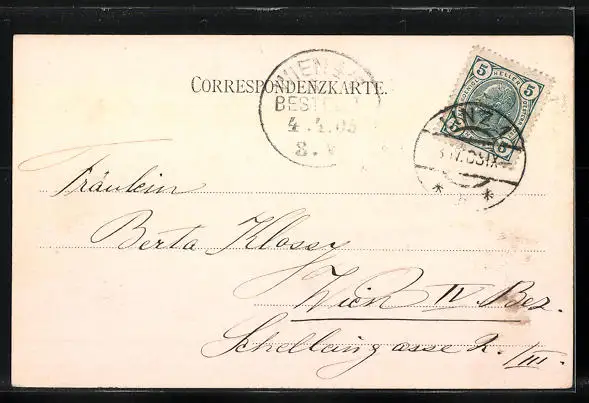 CORRESPONDENZKARTE.
WIEN
BESTELLT
4.4.05
8.V
5 HELLER 5
Fräulein
Berta Klossy
Wien IV. Bez.
Schelleingasse 2./III.